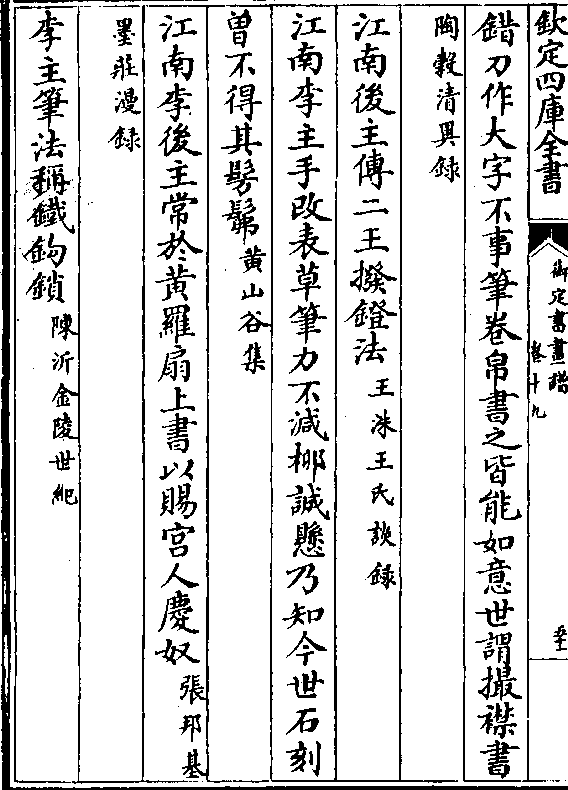 欽定四庫全書
御定書畫譜
卷十九
錯刀作大字不事筆卷帛書之皆能如意世謂撮襟書
陶穀清異錄
江南後主傳二王撥鐙法王洙王氏談錄
江南李主手改表草筆力不減栁誠懸乃知今世石刻
曽不得其髣髴黄山谷集
江南李後主常於黄羅扇上書以賜宫人慶奴張邦基
墨莊漫録
李主筆法稱鐵鈎鎖陳沂金陵世紀